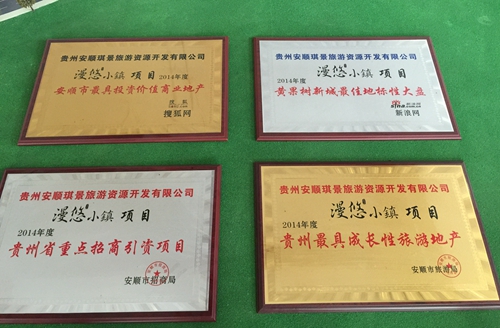 贵州安顺琪景旅游资源开发有限公司
漫悠小镇 项目
2014年度
安顺市最具投资价值商业地产
搜狐网
贵州安顺琪景旅游资源开发有限公司
漫悠小镇 项目
2014年度
黄果树新城最佳地标性大盘
sina
新浪网
贵州安顺琪景旅游资源开发有限公司
漫悠小镇 项目
2014年度
贵州省重点招商引资项目
安顺市招商局
贵州安顺琪景旅游资源开发有限公司
漫悠小镇 项目
2014年度
贵州最具成长性旅游地产
安顺市旅游局